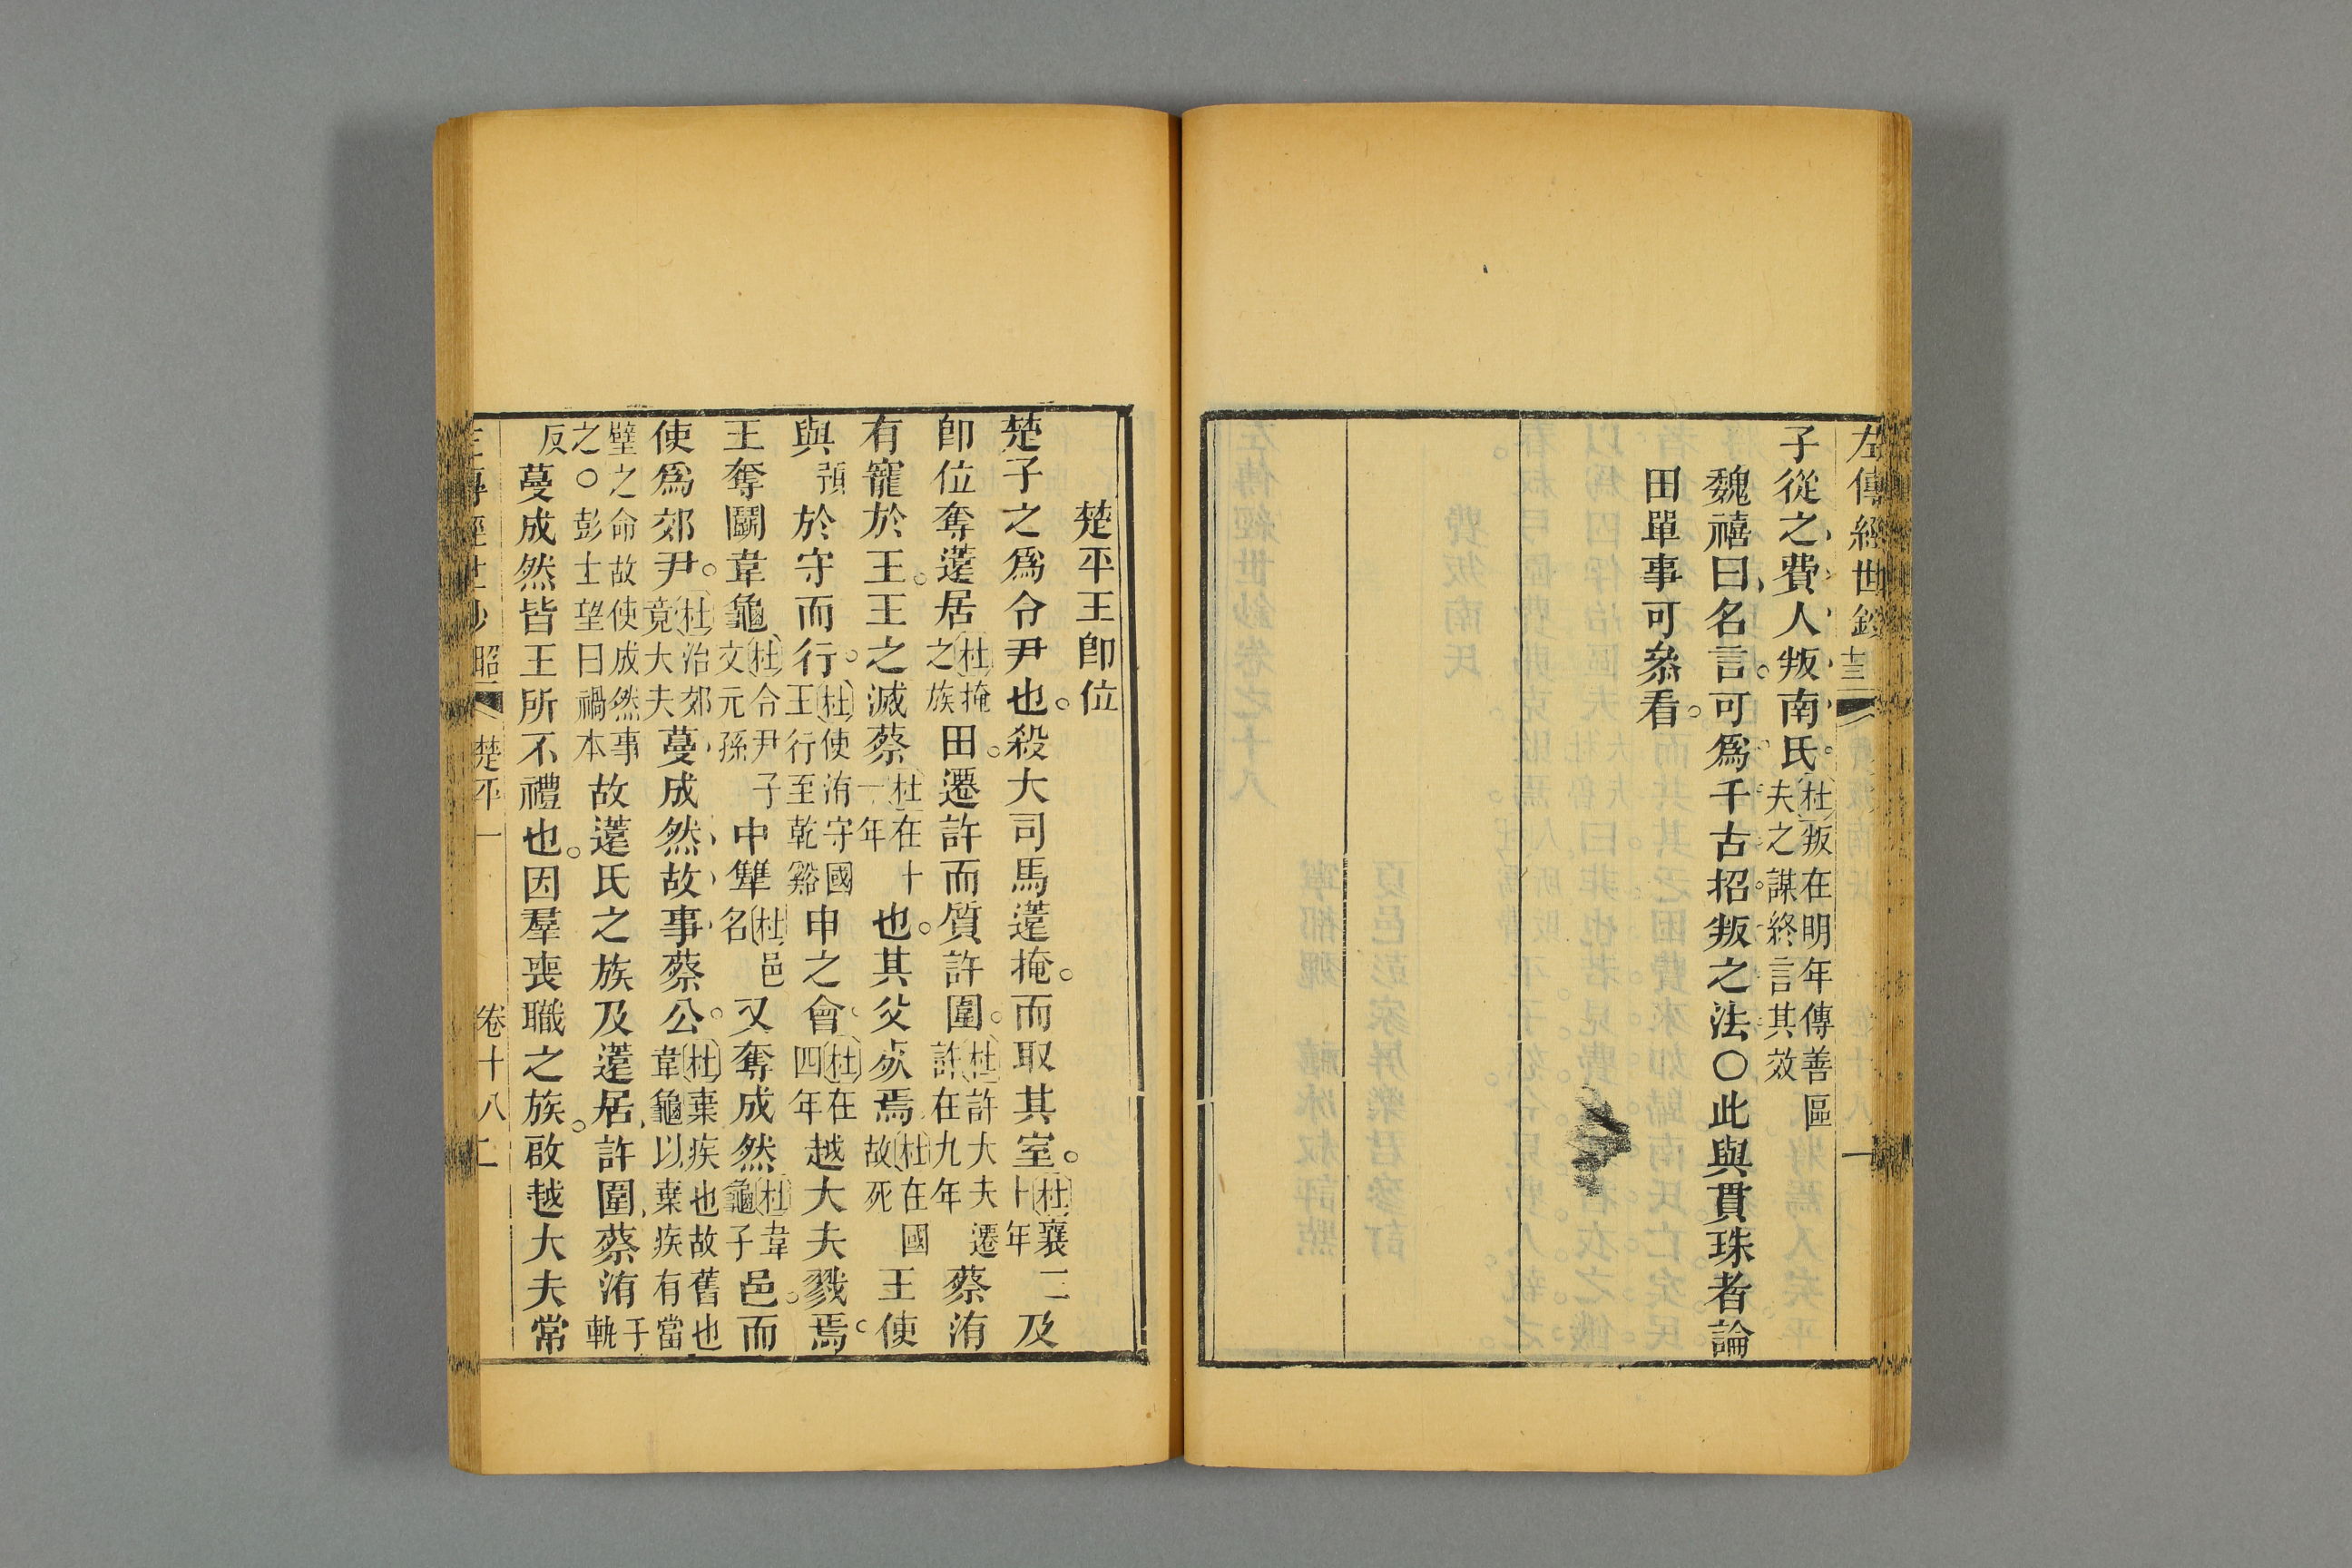 左傳經世鈔
子從之費人叛南氏。杜叛在明年傳善區
夫之謀終言其效
魏禧曰名言。可爲千古招叛之法○此與貫珠者論
田單事可叅看。
楚平王卽位
楚子之爲令尹也。殺大司馬薳掩。而取其室。杜襄二
十年
及
卽位奪薳居杜掩
之族
田。遷許而質許圍。杜許大夫遷
許在九年
蔡洧
有寵於王。王之滅蔡杜在十
一年
也。其父死焉杜在國
故死
王使
與預於守而行。杜使洧守國
王行至乾谿
申之會。杜在
四年
越大夫戮焉。
王奪鬭韋龜杜令尹子
文元孫
中犫杜邑
名
又奪成然杜韋
龜子
邑。而
使爲郊尹。杜治郊
竟大夫
蔓成然故事蔡公。杜棄疾也故舊也
韋龜以棄疾有當
璧之命故使成然事
之○彭士望曰禍本
故薳氏之族及薳居許圍蔡洧于
軌
反
蔓成然皆王所不禮也。因羣喪職之族。啟越大夫常
昭 楚平一 卷十八 二